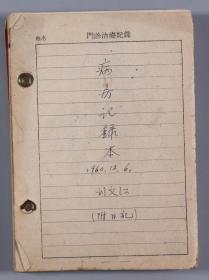 門診治療記錄
姓名
病
房
记
録
本
1960.12.6.
刘文江
(附日記)